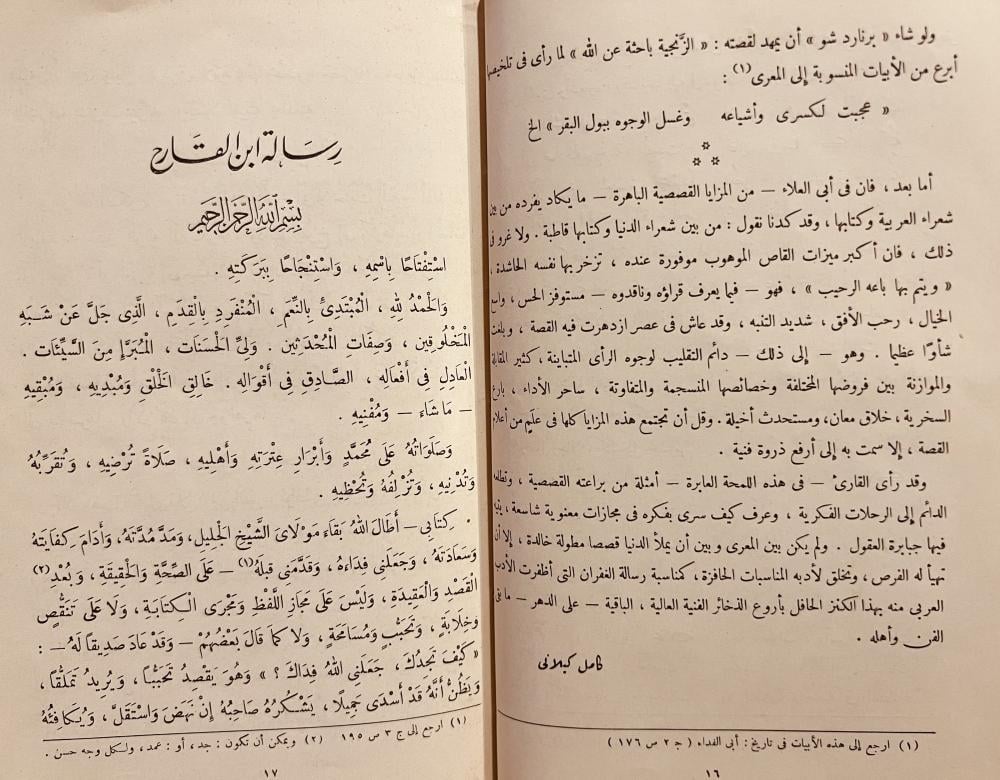 ولو شاء « برنارد شو » أن يمهد لقصته : « الزَّنجية باحثة عن الله » لما رأى فى تلخيصها
أبرع من الأبيات المنسوبة إلى المعرى(١) :
« عجبت لكسرى وأشياعه وغسل الوجوه ببول البقر » الخ
أما بعد ، فان فى أبى العلاء — من المزايا القصصية الباهرة — ما يكاد يفرده من بين
شعراء العربية وكتابها ، وقد كدنا نقول : من بين شعراء الدنيا وكتابها قاطبة . ولا غرو فى
ذلك ، فان أكبر ميزات القاص الموهوب موفورة عنده ، تزخر بها نفسه الحاشدة ،
« ويتم بها باعه الرحيب » ، فهو — فيما يعرف قراؤه وناقدوه — مستوفز الحس ، واسع
الخيال ، رحب الأفق ، شديد التنبه . وقد عاش فى عصر ازدهرت فيه القصة ، وبلغت
شأوًا عظيما . وهو — إلى ذلك — دائم التقليب لوجوه الرأى المتباينة ، كثير المقابلة
والموازنة بين فروضها المختلفة وخصائصها المنسجمة والمتفاوتة ، ساحر الأداء ، بارع
السخرية ، خلاق معان، ومستحدث أخيلة . وقل أن تجتمع هذه المزايا كلها فى علَمٍ من أعلام
القصة ، إلا سمت به إلى أرفع ذروة فنية .
وقد رأى القارئ — فى هذه اللمحة العابرة — أمثلة من براعته القصصية ، وتطلعه
الدائم إلى الرحلات الفكرية ، وعرف كيف سرى بفكره فى مجازات معنوية شاسعة ، يتيه
فيها جبابرة العقول . ولم يكن بين المعرى وبين أن يملأ الدنيا قصصا مطولة خالدة ، إلا أن
تهيأ له الفرص ، وتخلق لأدبه المناسبات الحافزة ، كمناسبة رسالة الغفران التى أظفرت الأدب
العربى منه بهذا الكنز الحافل بأروع الذخائر الفنية العالية ، الباقية — على الدهر — ما بقى
الفن وأهله .
كامل كيلانى
(١) ارجع إلى هذه الأبيات فى تاريخ : أبى الفداء ( ج ٢ ص ١٧٦ )
١٦
رسالة ابن القارح
بسم الله الرحمن الرحيم
اسْتِفْتَاحًا بِاسْمِهِ ، وَاسْتِنْجَاحًا بِبَرَكَتِهِ .
وَالْحَمْدُ لِلهِ ، الْمُبْتَدِئِ بِالنِّعَمِ ، الْمُنْفَرِدِ بِالْقِدَمِ ، الَّذِى جَلَّ عَنْ شَبَهِ
الْمَخْلُوقِينَ ، وَصِفَاتِ الْمُحْدَثِينَ . وَلِيِّ الْحَسَنَاتِ ، الْمُبَرَّإِ مِنَ السَّيِّئَاتِ .
الْعَادِلِ فِى أَفْعَالِهِ ، الصَّادِقِ فِى أَقْوَالِهِ . خَالِقِ الْخَلْقِ وَمُبْدِيهِ ، وَمُبْقِيهِ
— مَا شَاءَ — وَمُفْنِيهِ .
وَصَلَوَاتُهُ عَلَى مُحَمَّدٍ وَأَبْرَارِ عِتْرَتِهِ وَأَهْلِيهِ ، صَلَاةً تُرْضِيهِ ، وَتُقَرِّبُهُ
وَتُدْنِيهِ ، وَتُزْلِفُهُ وَتُحْظِيهِ .
كِتَابِى — أَطَالَ اللهُ بَقَاءَ مَوْلَاىَ الشَّيْخِ الْجَلِيلِ، وَمَدَّ مُدَّتَهُ، وَأَدَامَ كِفَايَتَهُ
وَسَعَادَتَهُ ، وَجَعَلَنِى فِدَاءَهُ ، وَقَدَّمَنِى قَبْلَهُ(١) — عَلَى الصِّحَّةِ وَالْحَقِيقَةِ ، وَبُعْدِ(٢)
الْقَصْدِ وَالْعَقِيدَةِ ، وَلَيْسَ عَلَى مَجَازِ اللَّفْظِ وَمَجْرَى الْكِتَابَةِ ، وَلَا عَلَى تَنَقُّصٍ
وَخِلَابَةٍ ، وَتَحَبُّبٍ وَمُسَامَحَةٍ ، وَلَا كَمَا قَالَ بَعْضُهُمْ — وَقَدْ عَادَ صَدِيقًا لَهُ — :
« كَيْفَ تَجِدُكَ ، جَعَلَنِى اللهُ فِدَاكَ ؟ » وَهُوَ يَقْصِدُ تَحَبُّبًا ، وَيُرِيدُ تَمَلُّقًا ،
وَيَظُنُّ أَنَّهُ قَدْ أَسْدَى جَمِيلًا ، يَشْكُرُهُ صَاحِبُهُ إِنْ نَهَضَ وَاسْتَقَلَّ ، وَيُكَافِئُهُ
(١) ارجع إلى ج ٣ ص ١٩٥ (٢) ويمكن أن تكون : جد ، أو : عمد ، ولكل وجه حسن .
١٧